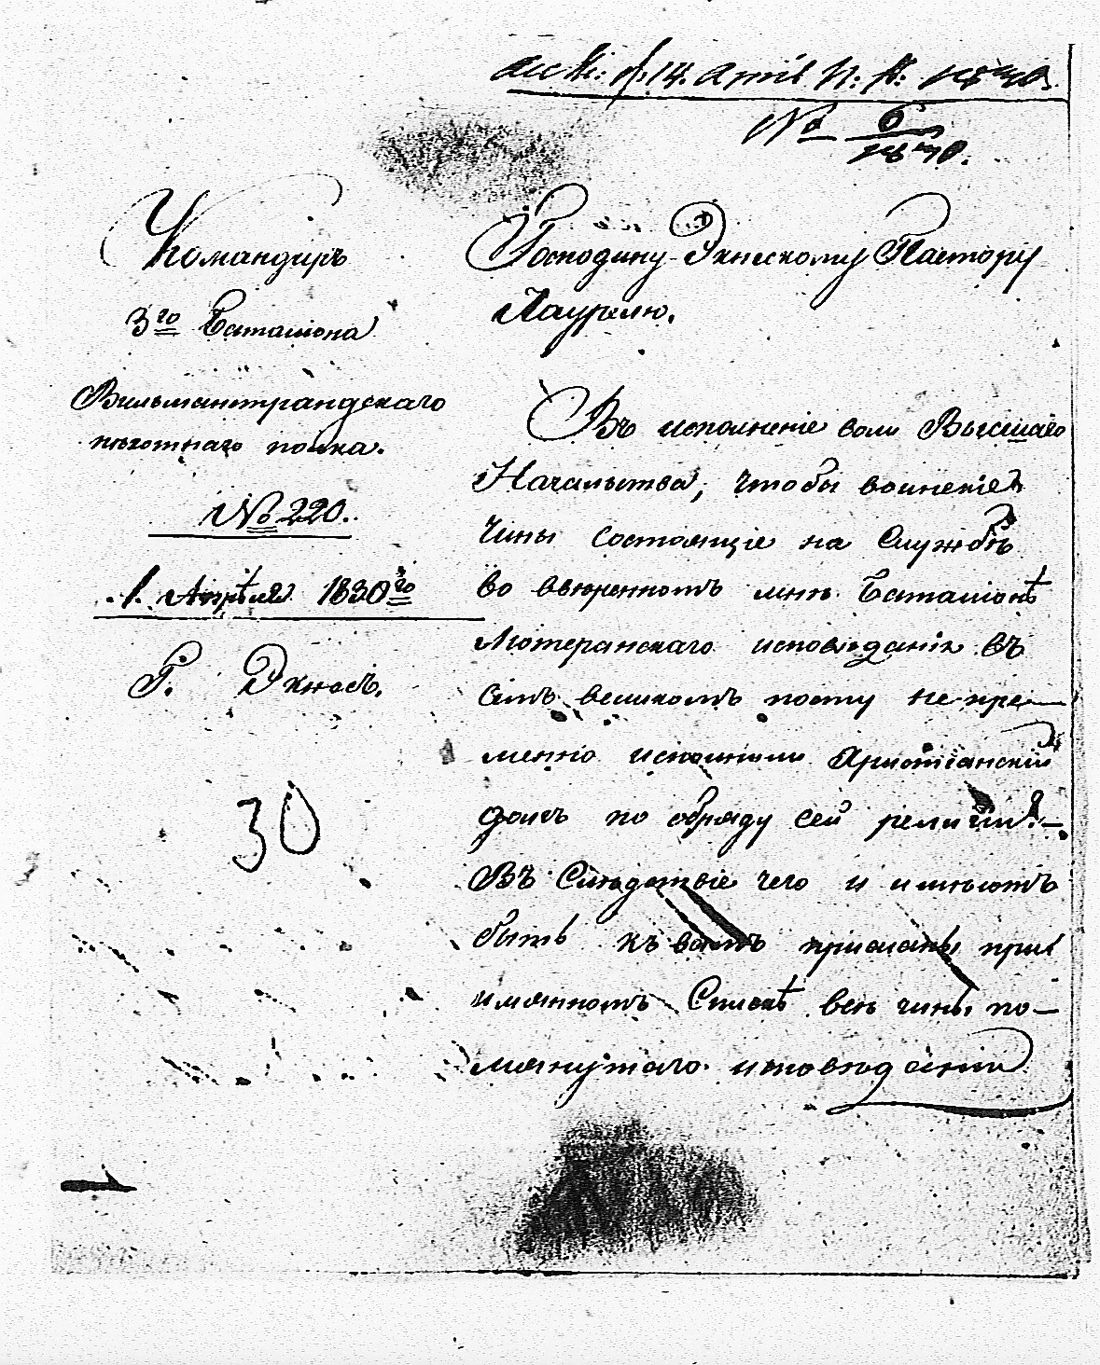 14. April
№ 6
Командиръ
3го Баталіона
Вильманстрандскаго
пѣхотнаго полка.
№ 220.
1. Апрѣля 1830го
Г. Экнесъ.
30
Господину Экнескому Пастору
Лаурелю.
Въ исполненіе воли Высшаго
Начальства, чтобы воинскіе
чины состоящіе на Службѣ
во ввѣренномъ мнѣ Баталіонѣ
Лютеранскаго исповѣданія въ
семъ великомъ посту непре—
менно исполнили Христіанскій
долгъ по обряду сей религіи. —
Въ Слѣдствіе чего и имѣютъ
быть къ вамъ присланы при
имянномъ Спискѣ всѣ чины по—
мянутаго исповѣданія